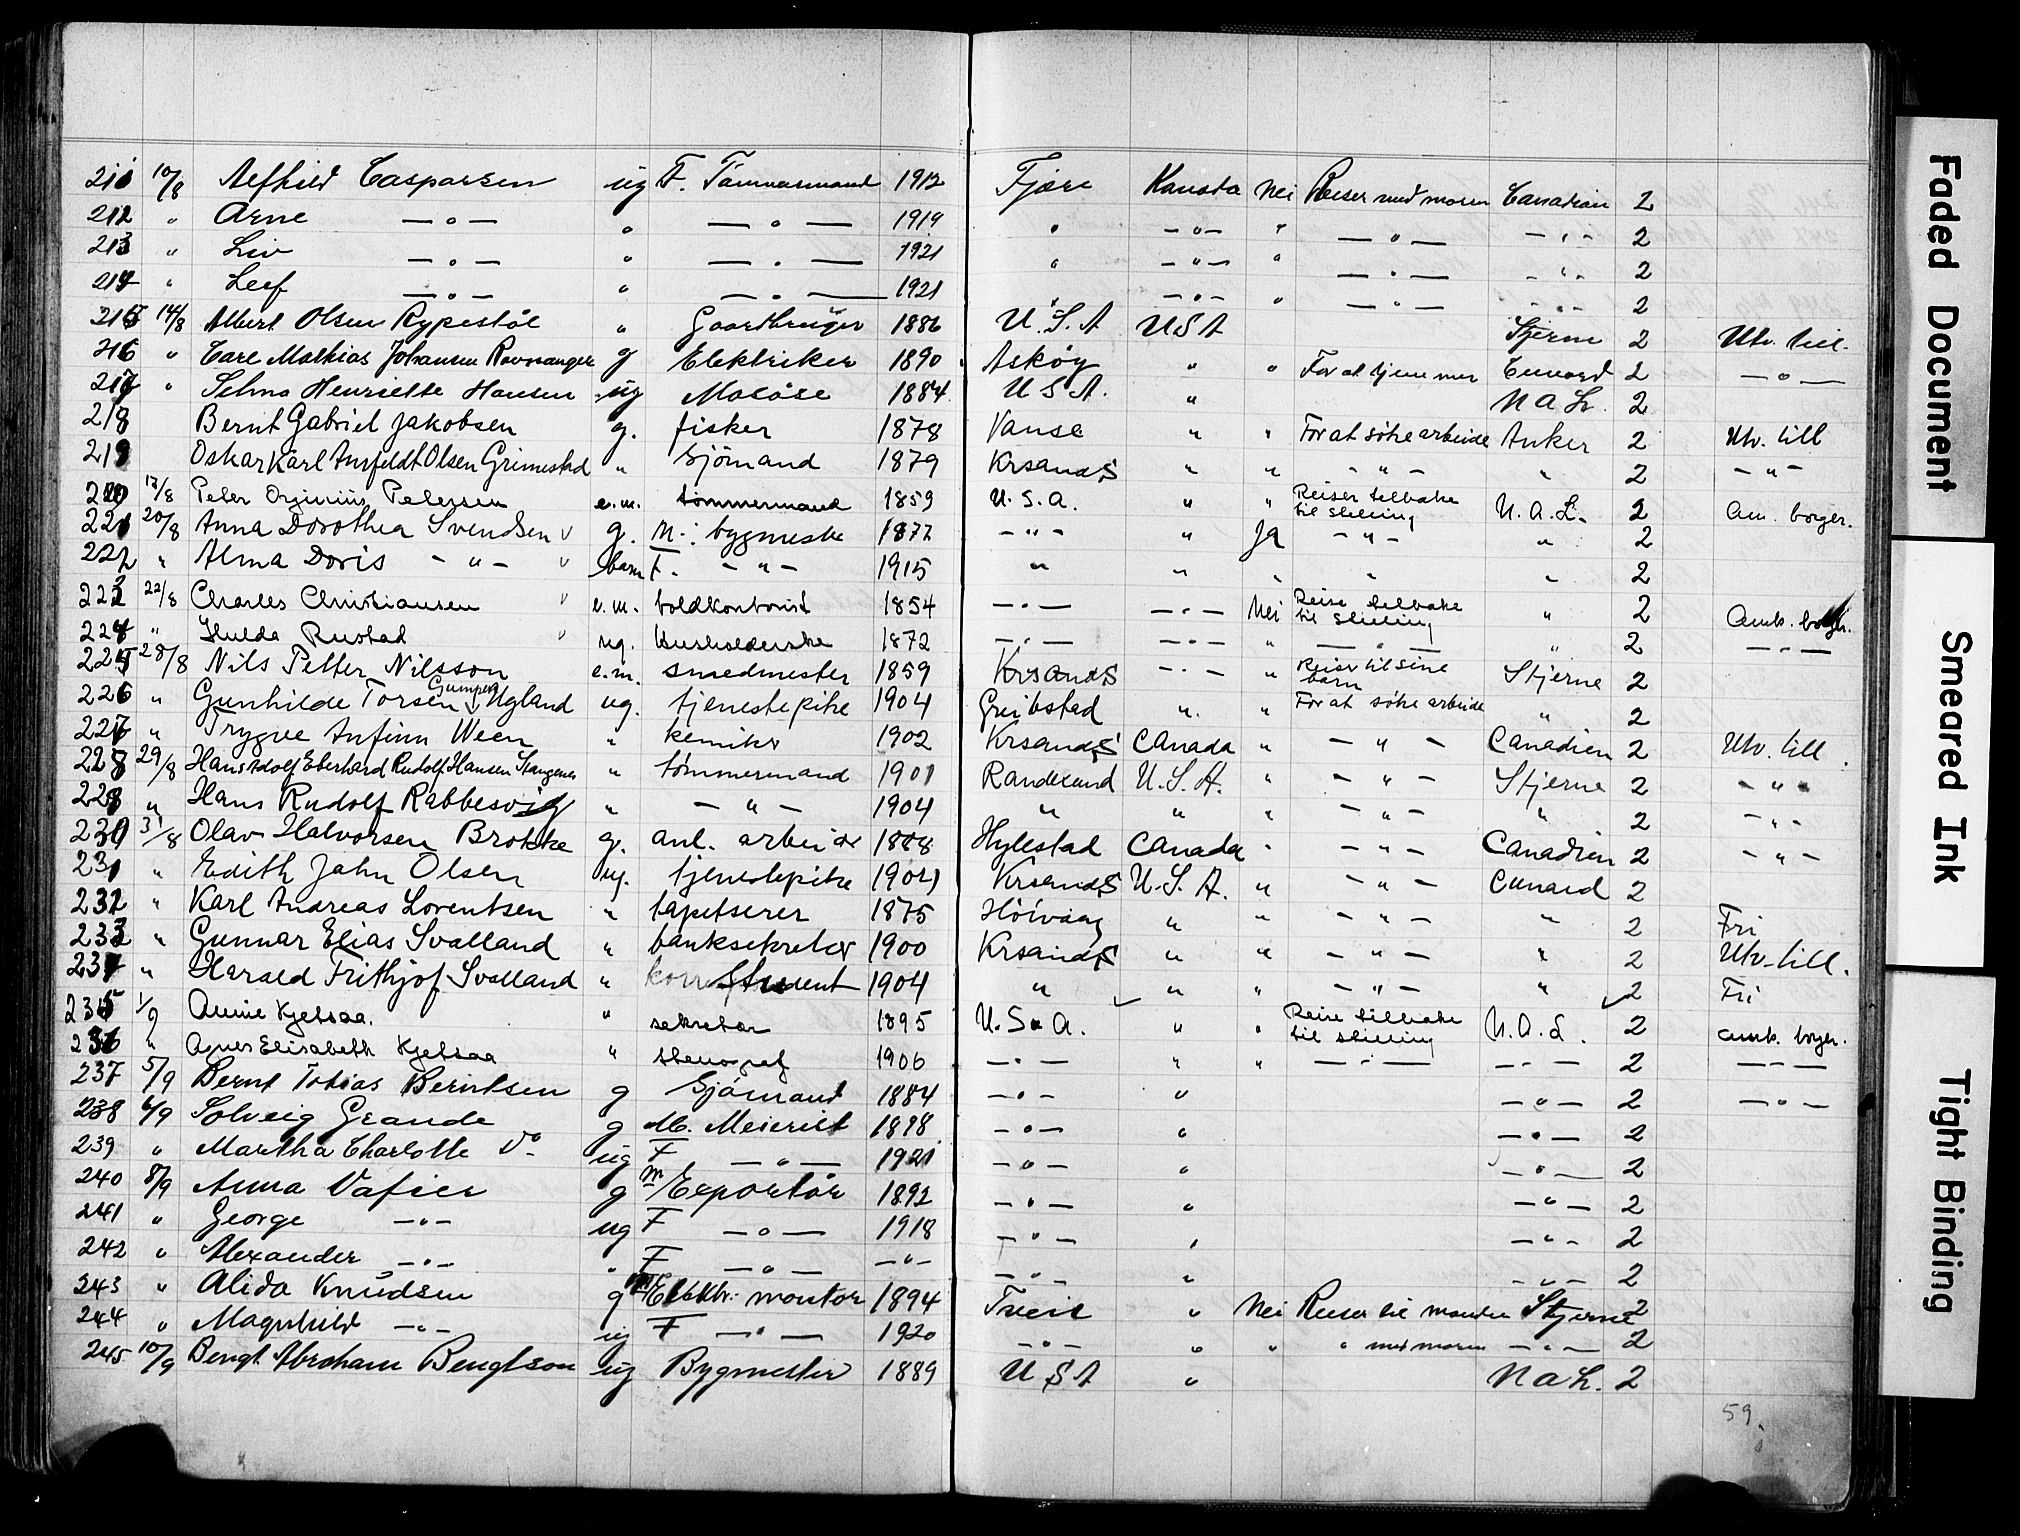 211 10/8 Alfhild Caspersen ug F. Tömmermand 1912 Fjære Kanada Nei Reiser med moren Canadian 2
212 " Arne —"— " —"— 1919 " —"— " —"— —"— 2
213 " Liv —"— " —"— 1921 " —"— " —"— —"— 2
214 " Leif —"— " —"— 1921 " —"— " —"— —"— 2
215 14/8 Albert Olsen Rypestöl " Gaardbruger 1886 U.S.A USA Stjerne 2 Utv. till.
216 " Carl Mathias Johansen Ravnanger g Elektriker 1890 Asköy " " For at tjene mer Cunard 2 —"—
217 " Selma Henriette Hansen ug Masöse 1884 U S A. " N a L. 2
218 Bernt Gabriel Jakobsen g. fisker 1878 Vanse " " For at söke arbeide Anker 2 Utv. till
219 Oskar Karl Amfeldt Olsen Grimestad " Sjömand 1879 KrsandS " " —"— " 2 —"—
220 17/8 Peter Orginius Petersen e.m. tömmermand 1859 U.S.A. " " Reiser tilbake til stilling N.A.L. 2 Am. borger.
221 20/8 Anna Dorothea Svendsen v g. M.: bygmeste 1877 —"— " Ja —"— " 2
222 " Alma Doris —"— v barn F. —"— 1915 " " " " " 2
223 22/8 Charles Christiansen v e.m. toldkontorist 1854 —"— —"— Nei Reise tilbake til stilling " 2 Amk. borger.
224 " Hulda Rustad v ug. Husholderske 1872 —"— —"— " —"— " 2 —"—
225 28/8 Nils Petter Nilsson e.m. smedmester 1859 KrsandS —"— " Reiser til sine barn Stjerne 2
226 " Gunhilde Torsen Gumpen Ugland ug. tjenestepike 1904 Greibstad " " For at söke arbeide " 2
227 " Trygve Anfinn Ween " kemiker 1902 KrsandS Canada " —"— Canadien 2 Utv. till.
228 29/8 Hans Adolf Eberhard Rudolf Hansen Stangenes " tömmermand 1901 Randesund U.S.A. " —"— Stjerne 2 —"—
229 " Hans Rudolf Rabbesvig " —"— 1904 " " " —"— " 2 —"—
230 31/8 Olav Halvorsen Brokke g. anl. arbeider 1888 Hylestad Canada " —"— Canadien 2 —"—
231 " Edith Jahn Olsen ug. tjenestepike 1904 KrsandS U.S.A. " —"— Cunard 2
232 " Karl Andreas Lorentsen " tapetserer 1875 Höivaag " " —"— " 2 Fri
233 " Gunnar Elias Svalland " banksekretær 1900 KrsandS " " —"— " 2 Utv. till.
234 " Harald Frithjof Svalland " Student 1904 " " " —"— " 2 Fri
235 1/9 Annie Kjetsaa. " sekretær 1895 U.S.A. " " Reise tilbake til stilling N.A.L. 2 amk. borger.
236 " Agnes Elisabeth Kjetsaa " stenograf 1906 —"— " " —"— —"— 2 —"—
237 5/9 Bernt Tobias Berintsen g Sjömand 1884 —"— " —"— 2 —"—
238 6/9 Solveig Grande g M. Meierist 1898 —"— " —"— 2
239 " Martha Charlotte Do ug F —"— 1921 —"— " —"— 2
240 8/9 Anna Vafier g M Exportör 1892 —"— " —"— 2
241 " George —"— ug F —"— 1918 —"— " —"— 2
242 " Alexander —"— " F —"— —"— —"— " —"— 2
243 " Alida Knudsen g M Elektr. montör 1894 Tveit " Nei Reiser til manden Stjerne 2
244 " Magnhild —"— ug F —"— 1920 —"— " " " med moren —"— 2
245 10/9 Bengt Abraham Bengtson ug Bygmester 1889 U S A " N a L. 2
59
Faded Document
Smeared Ink
Tight Binding